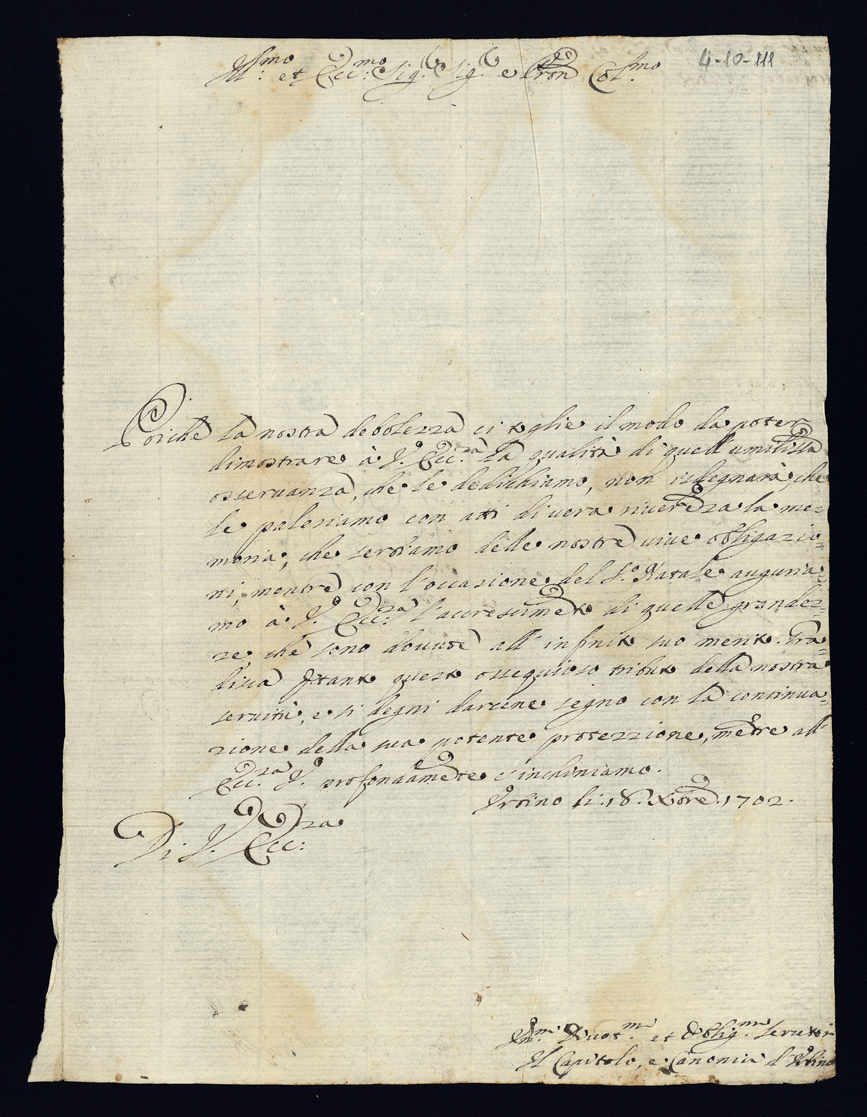 Ill.mo et Ecc.mo Sig.r Sig.r e Pron Col.mo
4-10-111
Poiche la nostra debolezza ci toglie il modo da poter
dimostrare à V. Ecc.za la qualità di quell'umilissa
osseruanza, che le dedichiamo, non isdegnarà, che
le palesiamo con atti di vera riuerẽza la me=
moria, che serbiamo delle nostre viue obligazio=
ni, mentre con l'occasione del S.o Natale auguria=
mo à V. Ecc.za l'accrescimẽto di quelle grandez=
ze, che sono douute all'infinito suo merito. Gra=
disca frante questo ossequioso tributo della nostra
seruitù, e si degni darcene segno con la continua=
zione della sua potente protezzione, mẽtre all'
Ecc.za V. profondamẽte c'inchiniamo.
Vrbino li: 18. Xbre 1702.
Di V. Ecc.za
Vm.mi Diuot.mi et Oblig.mi Seruitori
Il Capitolo, e Canonici d'Vrbino